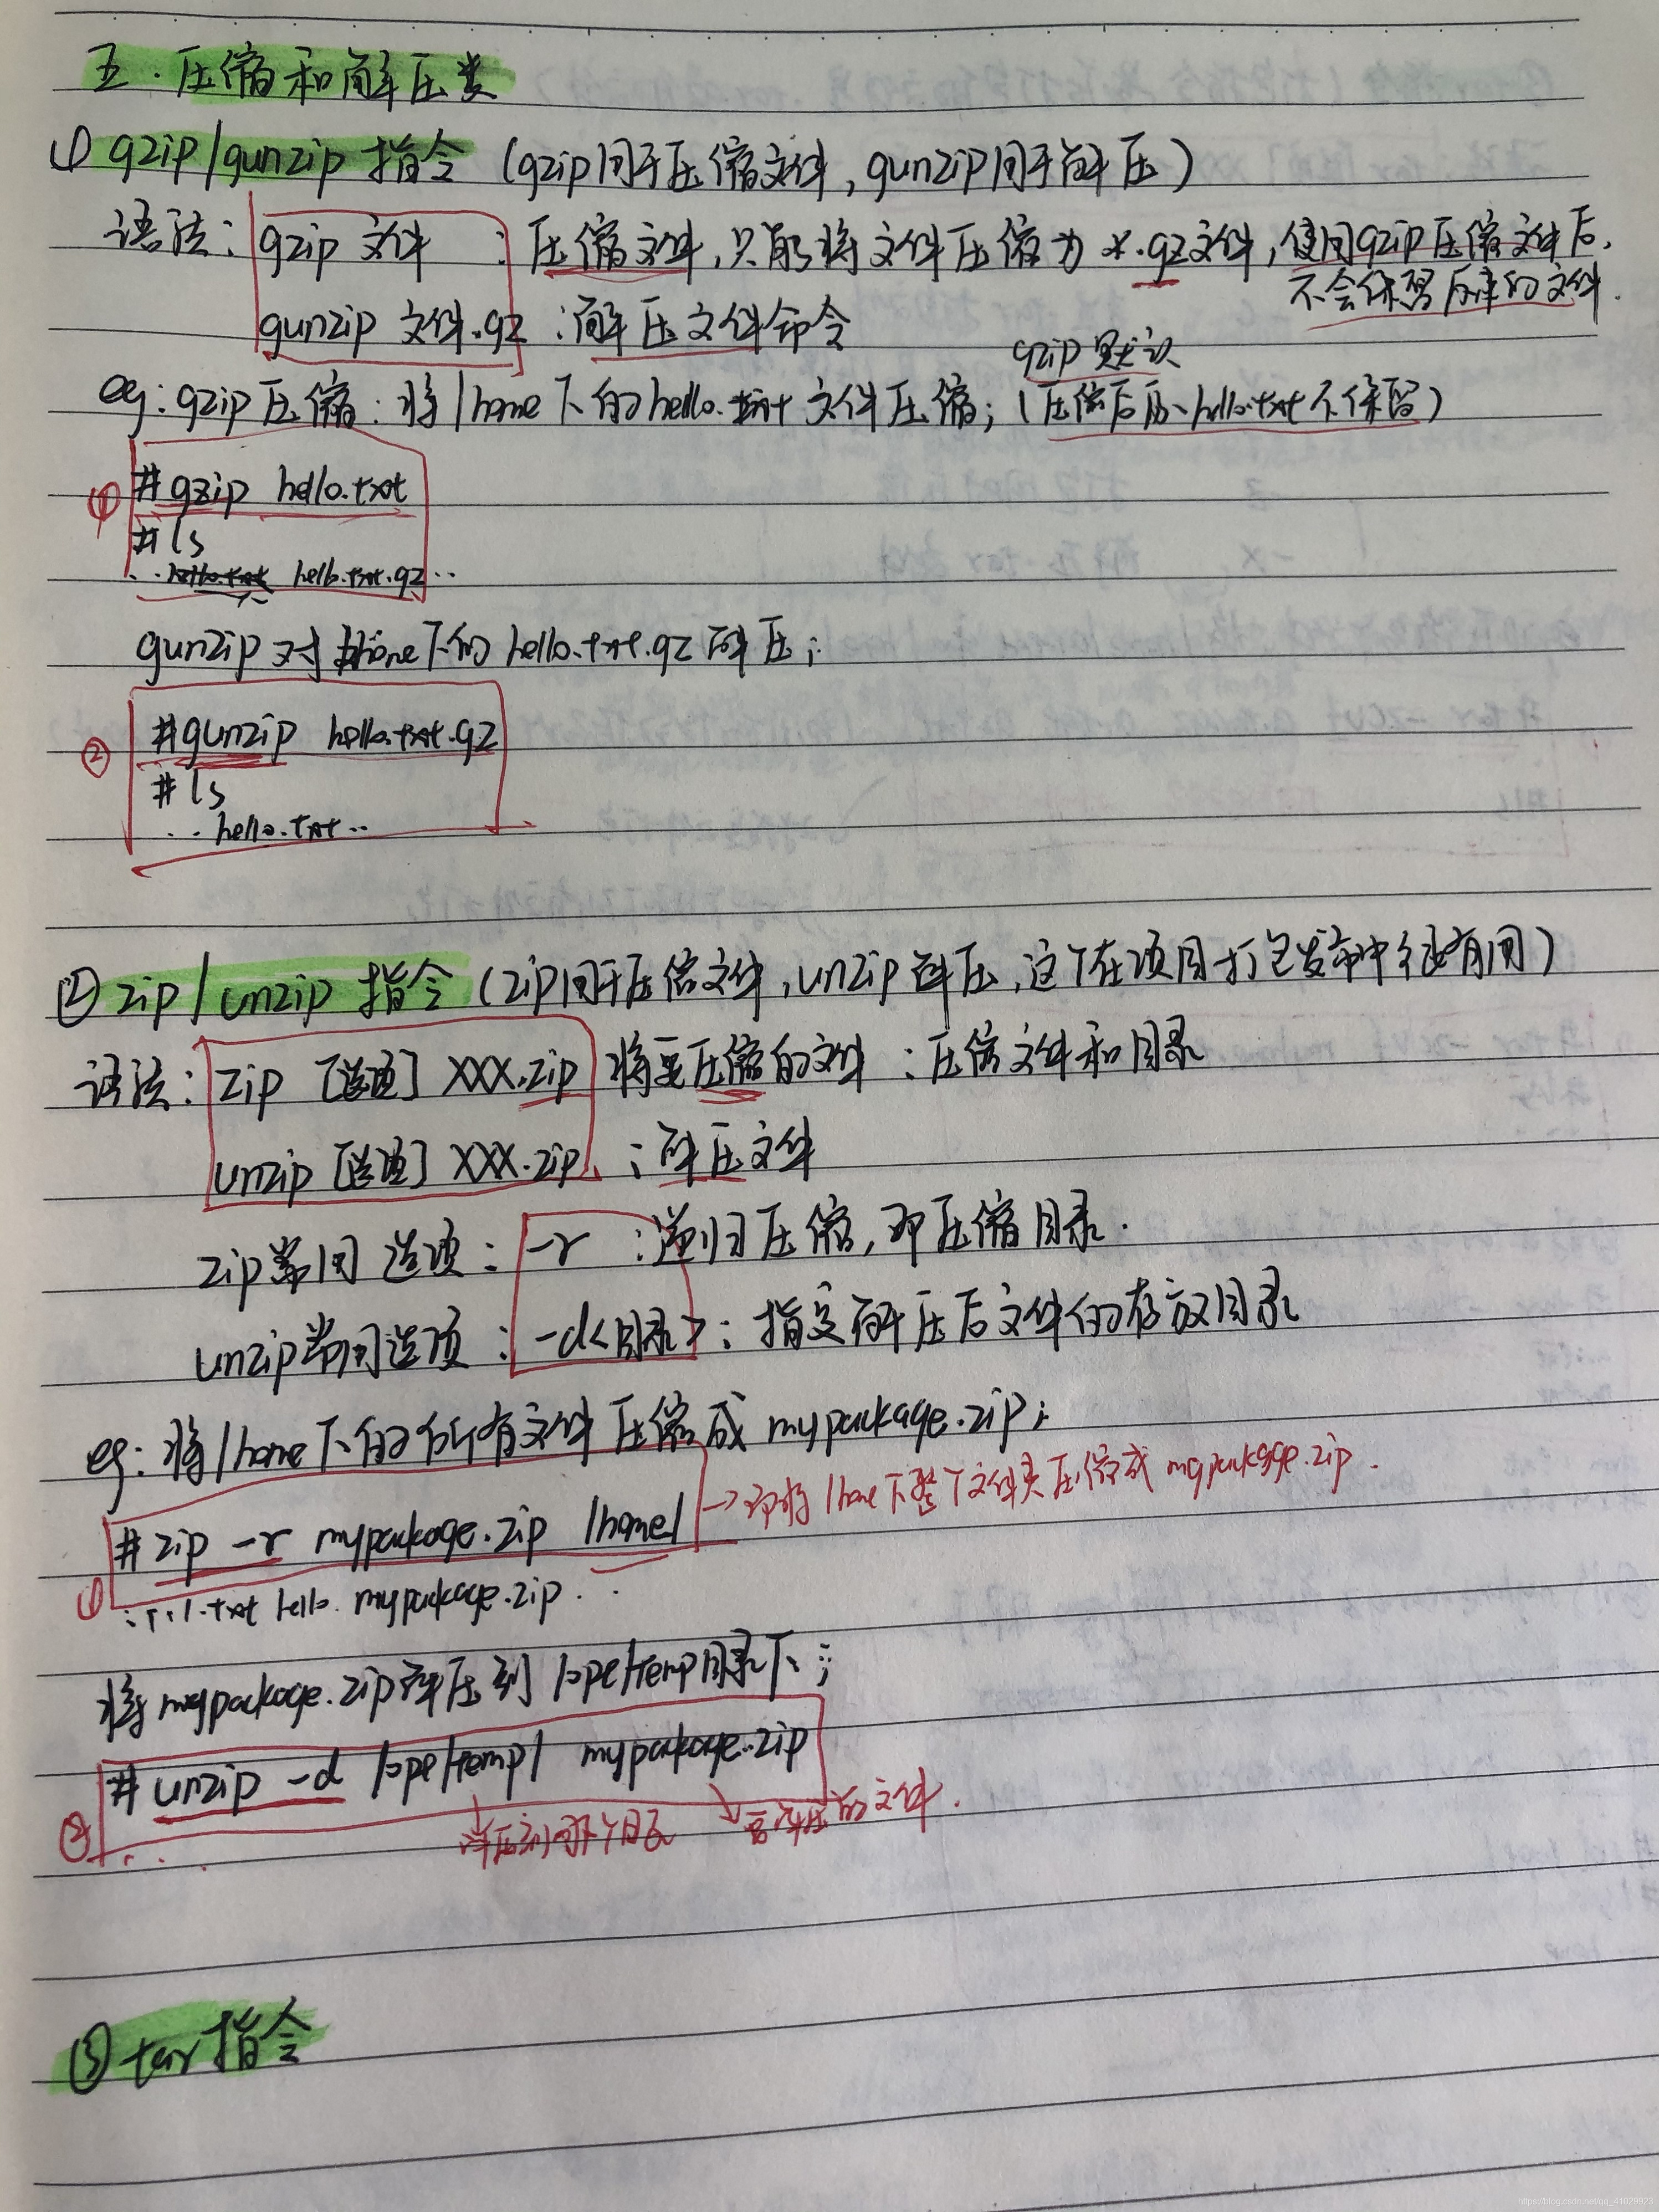 五.压缩和解压类
① gzip/gunzip 指令 (gzip用于压缩文件,gunzip用于解压)
语法: gzip 文件 : 压缩文件,只能将文件压缩为 *.gz文件,使用gzip压缩文件后,
不会保留原来的文件.
gunzip 文件.gz : 解压文件命令
gzip 默认
eg: gzip压缩: 将/home下的hello.txt文件压缩; (压缩后原 hello.txt不保留)
① #gzip hello.txt
#ls
..hello.txt hello.txt.gz..
gunzip 对 /home下的 hello.txt.gz 解压;
② #gunzip hello.txt.gz
#ls
.. hello.txt ..
② zip/unzip 指令 (zip用于压缩文件,unzip解压,这个在项目打包发布中很有用)
语法: zip [选项] XXX.zip 将要压缩的文件 : 压缩文件和目录
unzip [选项] XXX.zip : 解压文件
zip常用选项: -r : 递归压缩,即压缩目录.
unzip常用选项: -d<目录>: 指定解压后文件的存放目录
eg: 将/home下的所有文件压缩成 mypackage.zip;
→ 即将/home下整个文件夹压缩成 mypackage.zip.
① # zip -r mypackage.zip /home/
hello. mypackage.zip ..
将 mypackage.zip解压到 /ope/temp目录下;
② # unzip -d /ope/temp/ mypackage.zip
解压到哪个目录 要解压的文件.
...
③ tar指令
https://blog.csdn.net/qq_41029923